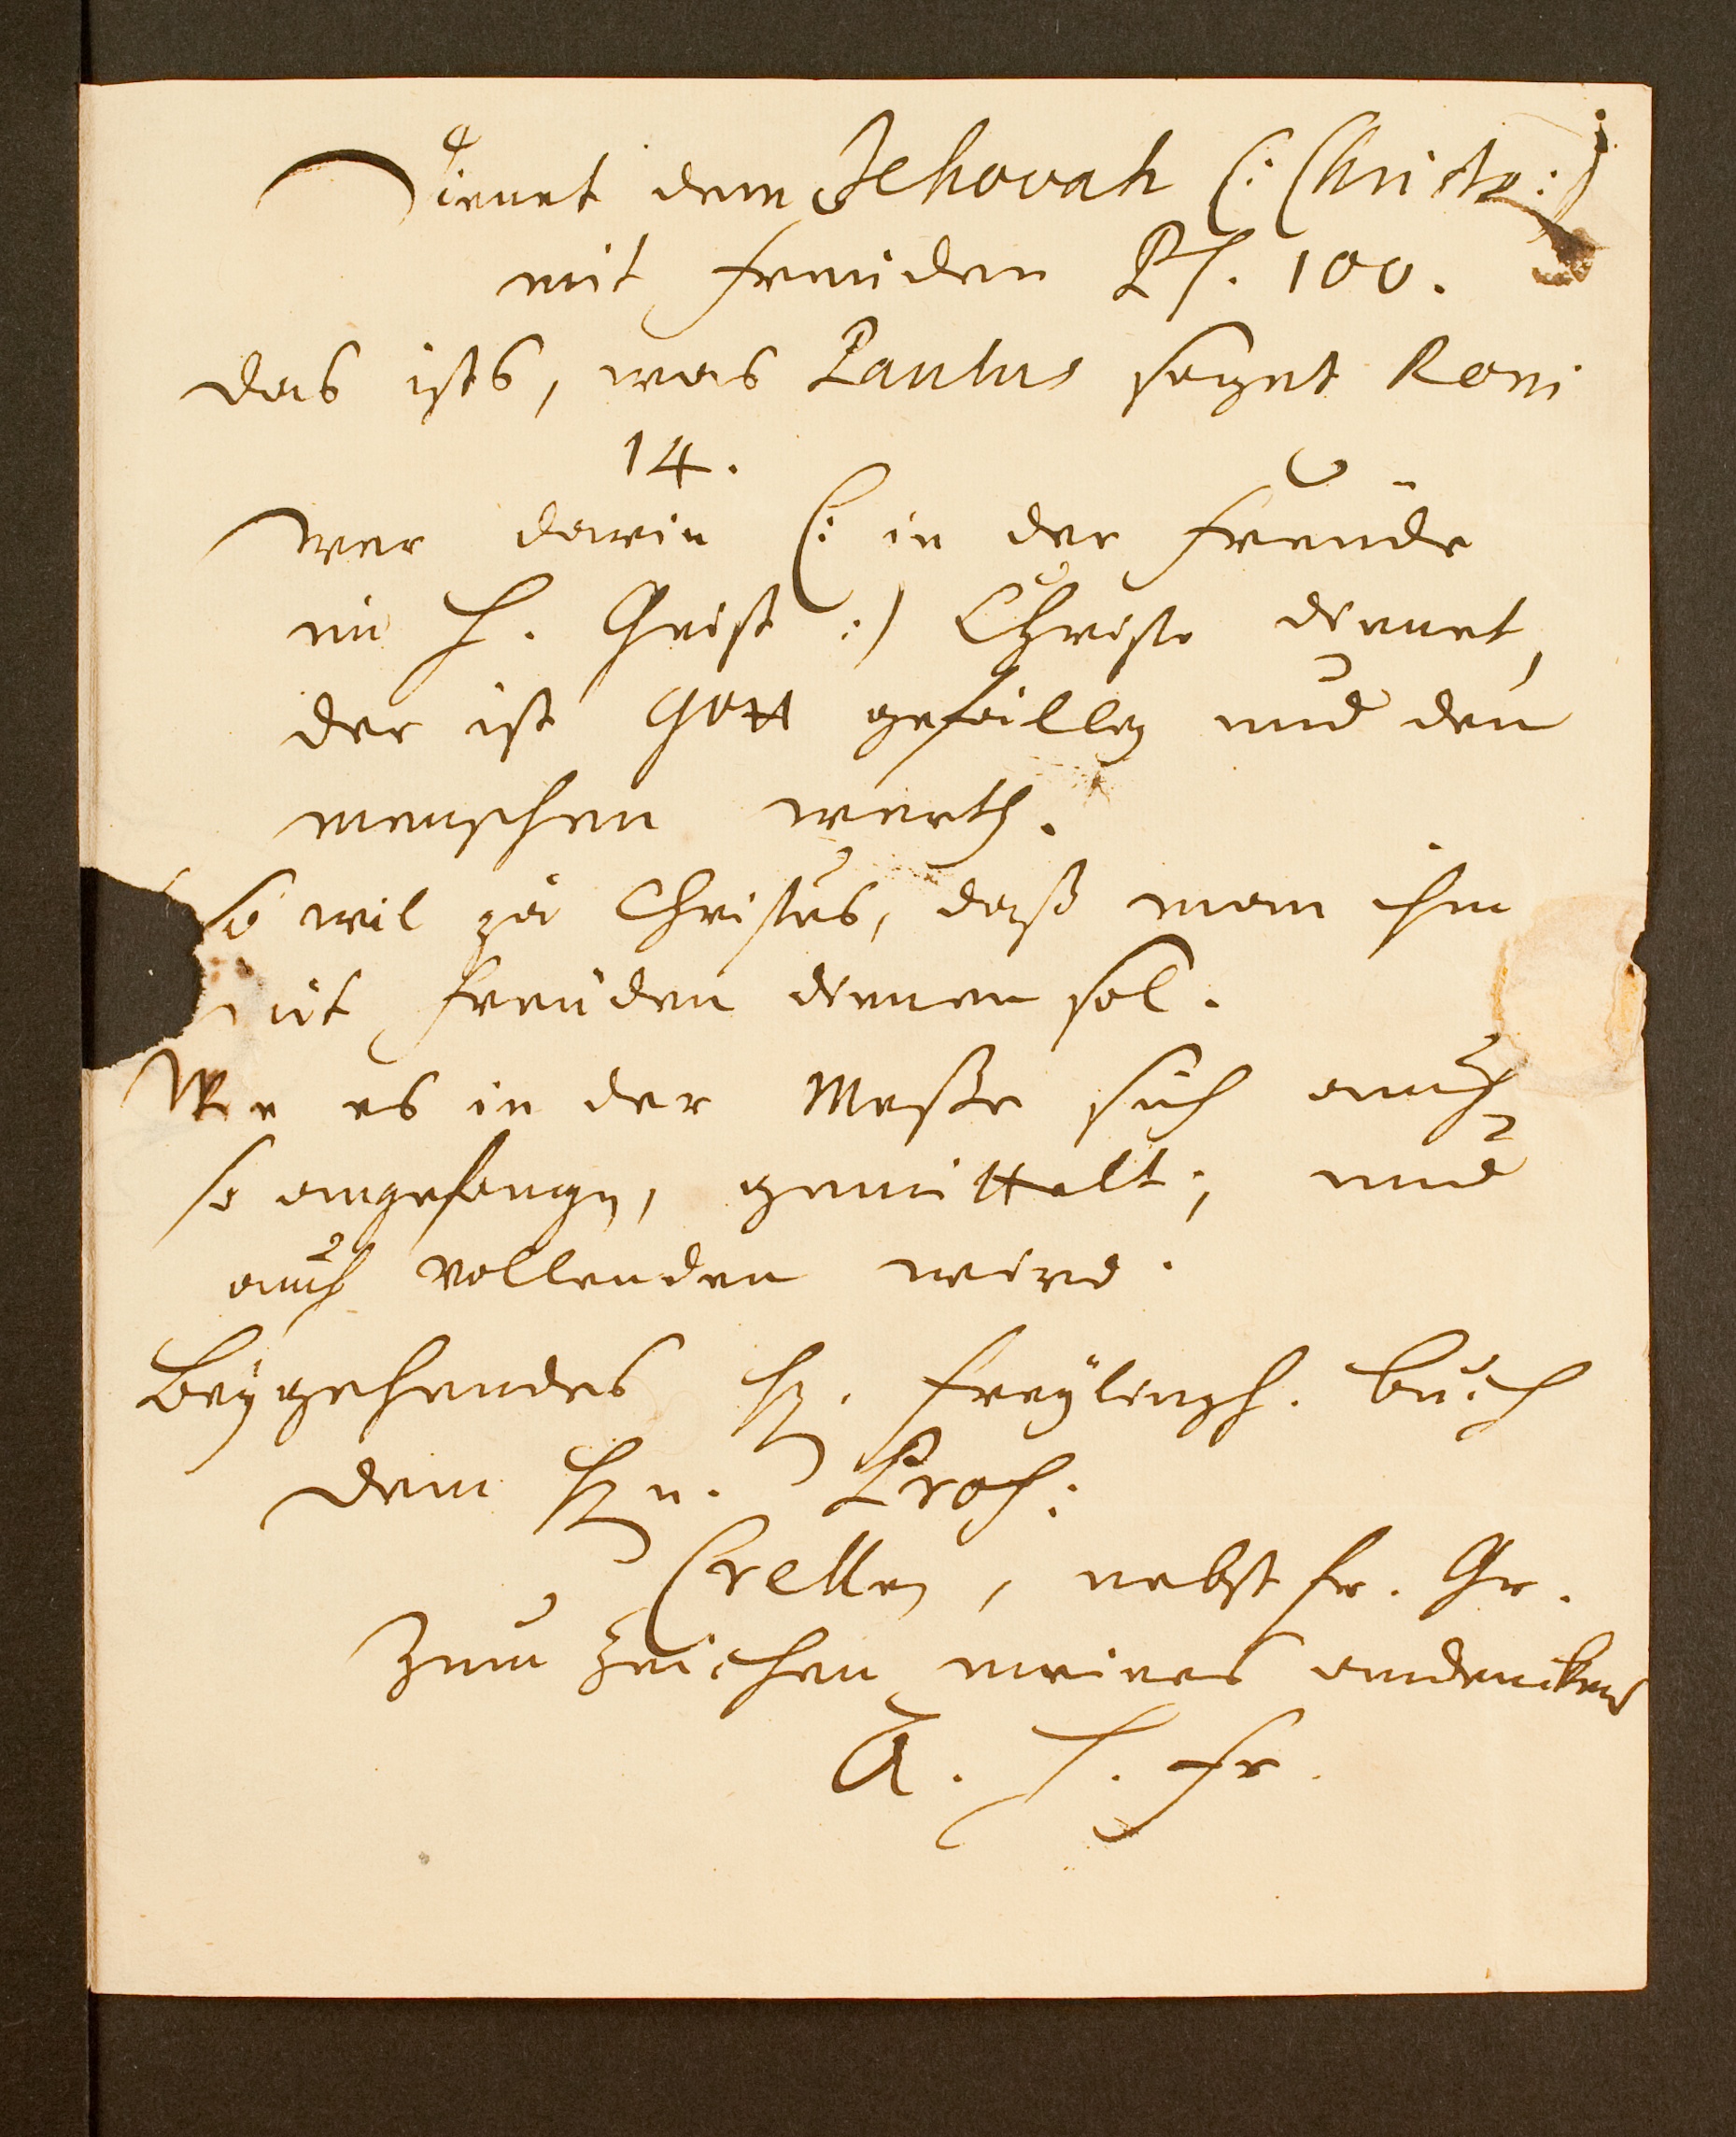 Dienet dem Jehovah (: Christo :)
mit freuden Ps. 100.
das ists, was Paulus saget Rom
14.
wer darin (: in der freude
im H. Geist :) Christo dienet,
der ist Gott gefällig und den
menschen werth.
so wil ja Christus, daß man ihm
mit freuden dienen sol.
Wie es in der Masse sich auch
so angefangen, gemittelt, und
auch vollenden wird.
Beygehendes H. Freylingh. buch
dem Hn. Prof:
Crellen, nebst fr. Gr.
zum zeichen meines andenckens
A. H. Fr.